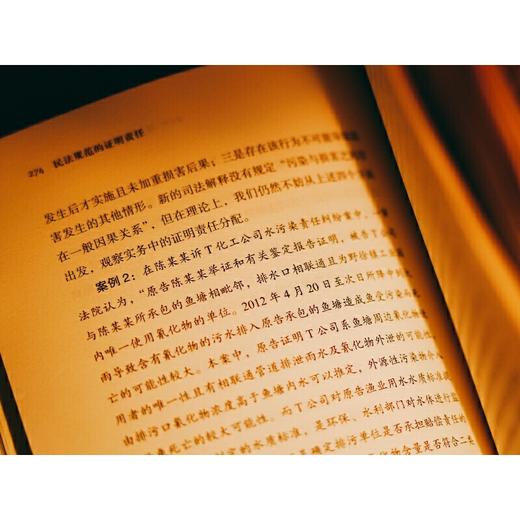 276 民法规范的证明责任
发生后才实施且未加重损害后果；三是存在该行为不可能导致损
害发生的其他情形。新的司法解释没有规定“污染与损害之间存
在一般因果关系”，但在理论上，我们仍然不妨从上述四个方面
出发，观察实务中的证明责任分配。
案例2：在陈某某诉T化工公司水污染责任纠纷案中，一审
法院认为，“原告陈某某举证和有关鉴定报告证明，被告T公司
与陈某某所承包的鱼塘相毗邻，排水口相联通且为野徐镇工业园
内唯一使用氰化物的单位。2012年4月20日至次日所降中到大
雨导致含有氰化物的污水排入原告承包的鱼塘造成鱼受污染而死
亡的可能性较大。本案中，原告证明T公司系鱼塘周边氰化物使
用者的唯一性且有相联通管道排泄雨水及氰化物外泄的可能性，
由排污口氰化物浓度高于鱼塘内水可以推定，外源性污染物介入
鱼死亡的较大可能性。而T公司对原告渔业用水水质标准
制定的水质标准，是环保、水利部门对水体进行监
确定排污单位是否承担赔偿责任的
化物含量是否符合二类